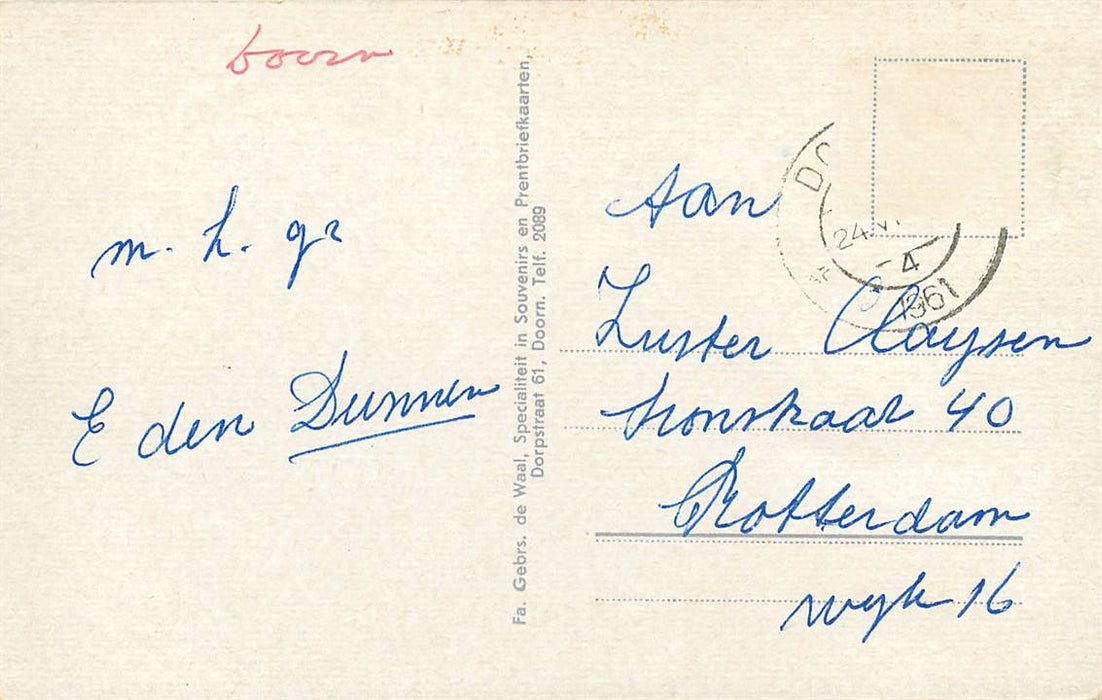 Doorn
m. h. gr
E den Dunnen
Fa. Gebrs. de Waal, Specialiteit in Souvenirs en Prentbriefkaarten,
Dorpstraat 61, Doorn. Telf. 2089
DO
24.VI
- 4
1961
Aan
Zuster Claysen
40
Rotterdam
wyk 16